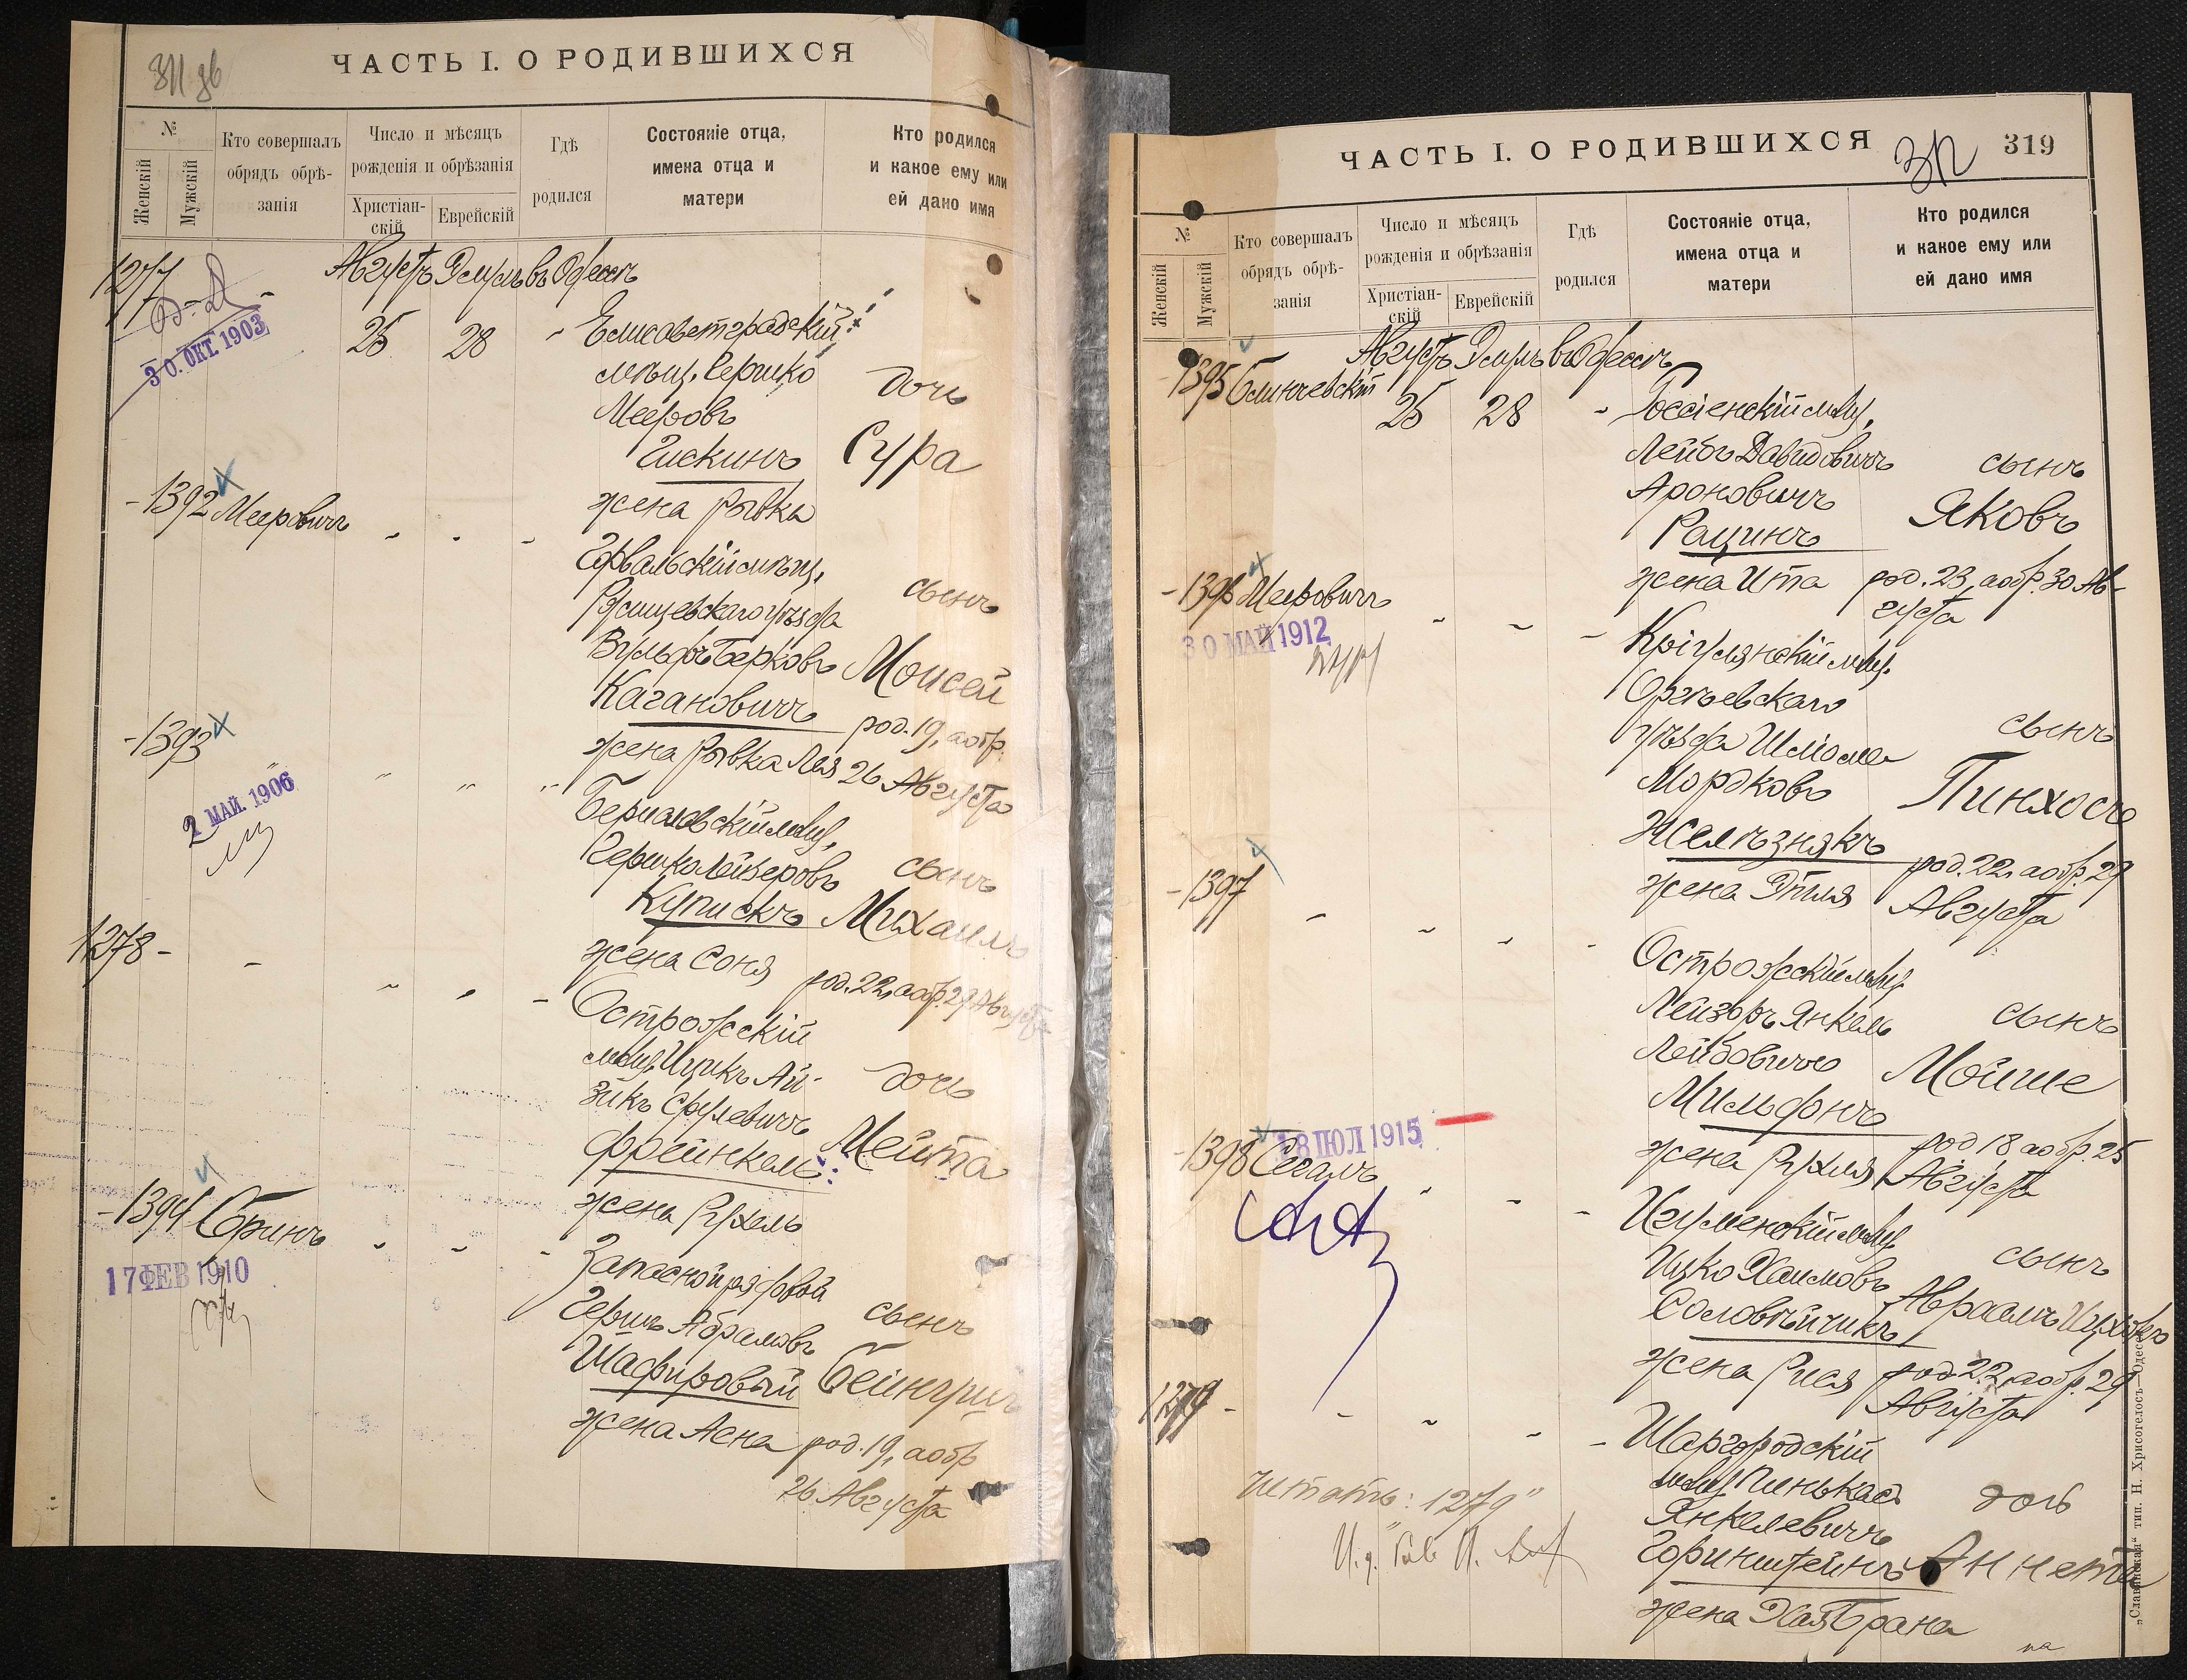 ЧАСТЬ I. О РОДИВШИХСЯ
№
Женскій
Мужскій
Кто совершалъ
обрядъ обрѣ-
занія
Число и мѣсяцъ
рожденія и обрѣзанія
Христіан-
скій
Еврейскій
Гдѣ
родился
Состояніе отца,
имена отца и
матери
Кто родился
и какое ему или
ей дано имя
1277
Августъ Элулъ въ Одессѣ
30. ОКТ. 1903
25 28 Елисаветградскій
мѣщ. Гершко
Мееровъ
Гискинъ
жена Рывка
дочь
Сура
1392 Мееровичъ
Горвальскій мѣщ.
Рѣчицкаго уѣзда
Вульфъ Берковъ
Кагановичъ
жена Рывка Лея
сынъ
Моисей
род. 19, а обр.
26 Августа
1393
2 МАЙ. 1906
Бершадскій мѣщ.
Гершко Лейзеровъ
Купискъ
жена Соня
сынъ
Михаилъ
род. 22, а обр. 29 Августа
1278
Острожскій
мѣщ. Ицикъ Ай-
зикъ Срулевичъ
Френкель
жена Рухель
дочь
Мейта
1394
17 ФЕВ 1910
Запасной рядовой
Гершъ Абрамовъ
Шафировый
жена Асна
сынъ
род. 19, а обр
26 Августа
ЧАСТЬ I. О РОДИВШИХСЯ
319
№
Женскій
Мужскій
Кто совершалъ
обрядъ обрѣ-
занія
Число и мѣсяцъ
рожденія и обрѣзанія
Христіан-
скій
Еврейскій
Гдѣ
родился
Состояніе отца,
имена отца и
матери
Кто родился
и какое ему или
ей дано имя
Августъ Элулъ въ Одессѣ
1395 Блинчевскій
25 28 Россіенскій мѣщ.
Лейба Давидовичъ
Ароновичъ
Рацинъ
жена Ита
сынъ
Яковъ
род. 23, а обр. 30 Ав-
густа
1396 Мееровичъ
30 МАЙ 1912
Кріулянскій мѣщ.
Оргѣевскаго
уѣзда Шлёма
Мордковъ
Желѣзнякъ
жена Этля
сынъ
Пинхосъ
род. 22, а обр. 29
Августа
1397
Острожскій мѣщ.
Лейзоръ Янкель
Лейбовичъ
Мильфонъ
жена Рухля
сынъ
Мойше
род 18 а обр. 25
Августа
1398 Сегалъ
18 ІЮЛ 1915
Игуменскій мѣщ.
Ицко Хаимовъ
Соловейчикъ
жена Рися
сынъ
Авраамъ Ицхокъ
род 22, а обр. 29
Августа
1279
Шаргородскій
мѣщ. Пинькас
Янкелевичъ
Горинштейнъ
жена Хая Брана
дочь
Аннета
читать: "1279"
„Славянская" тип. Н. Хрисогелосъ—Одесса